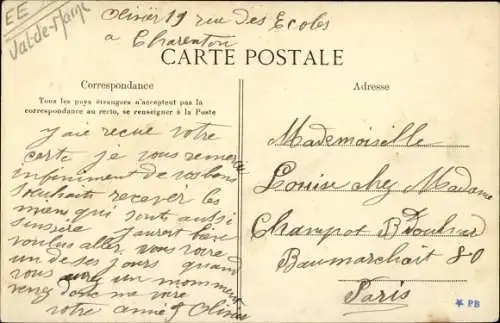 EE
Val-de-Marne
Olivier 19 rue des Ecoles
a Charenton
CARTE POSTALE
Correspondance
Tous les pays étrangers n'acceptent pas la
correspondance au recto, se renseigner à la Poste
Adresse
J'aie recue votre
carte je vous remercie
infiniment de vos bons
souhaits recever les
miens qui sont aussi
sinsère j'aurait bien
voulus aller vous voire
un de ses jours quand
vous aurez un momment
venez donc me voire
votre amie J Olivier
Mademoiselle
Louise chez Madame
Champot Bd
Baumarchait 80
Paris
PB